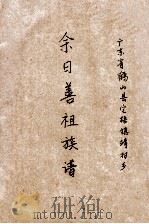 广东省鹤山县宅梧镇靖村乡
余日善祖族谱